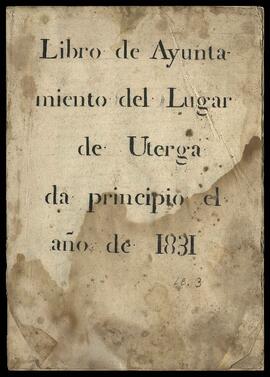 Libro de Ayunta-
miento del Lugar
de Uterga
da principio el
año de 1831